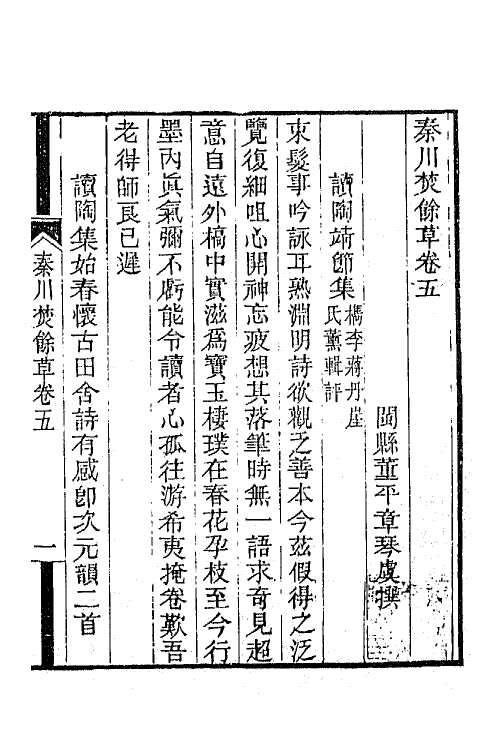 秦川焚餘草卷五
閩縣董平章琴虞撰
讀陶靖節集檇李蔣丹厓
氏薰輯評
束髮事吟詠耳熟淵明詩欲觀乏善本今茲假得之泛
覽復細咀心開神忘疲想其落筆時無一語求奇見超
意自遠外槁中實滋爲寶玉棲璞在春花孕枝至今行
墨內眞氣彌不虧能令讀者心孤往游希夷掩卷歎吾
老得師良已遲
讀陶集始春懷古田舍詩有感卽次元韻二首
秦川焚餘草卷五
一